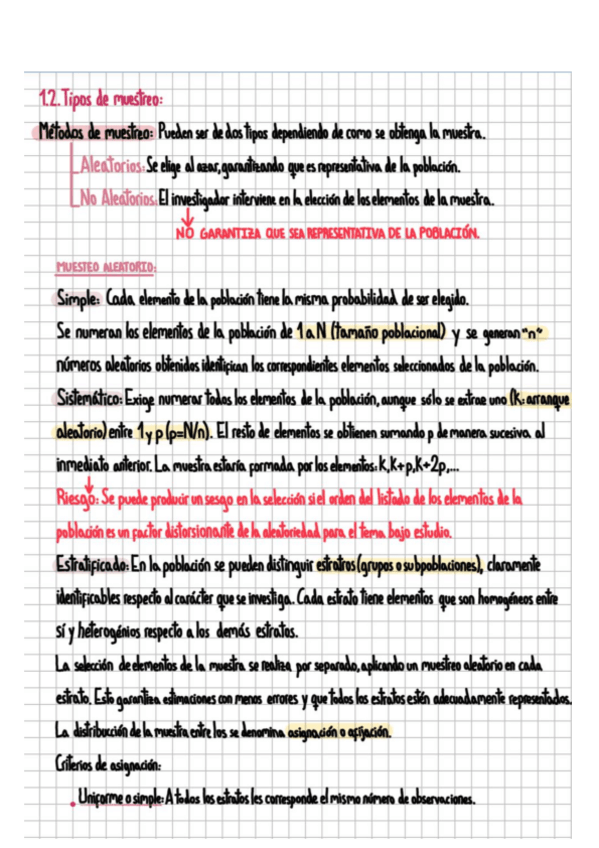 1.2. Tipos de muestreo:
Métodos de muestreo: Pueden ser de dos tipos dependiendo de como se obtenga la muestra.
Aleatorios: Se elige al azar, garantizando que es representativa de la población.
No Aleatorios: El investigador interviene en la elección de los elementos de la muestra.
NO GARANTIZA QUE SEA REPRESENTATIVA DE LA POBLACIÓN.
MUESTEO ALEATORIO:
Simple: Cada elemento de la población tiene la misma probabilidad de ser elegido.
Se numeran los elementos de la población de 1 a N (tamaño poblacional) y se generan "n"
números aleatorios obtenidos identifican los correspondientes elementos seleccionados de la población.
Sistemático: Exige numerar todos los elementos de la población, aunque sólo se extrae uno (k: arranque
aleatorio) entre 1 y p (p=N/n). El resto de elementos se obtienen sumando p de manera sucesiva al
inmediato anterior. La muestra estaría formada por los elementos: k, k+p, k+2p,...
Riesgo: Se puede producir un sesgo en la selección si el orden del listado de los elementos de la
población es un factor distorsionante de la aleatoriedad para el tema bajo estudio.
Estratificado: En la población se pueden distinguir estratos (grupos o subpoblaciones), claramente
identificables respecto al carácter que se investiga. Cada estrato tiene elementos que son homogéneos entre
sí y heterogénios respecto a los demás estratos.
La selección de elementos de la muestra se realiza por separado, aplicando un muestreo aleatorio en cada
estrato. Esto garantiza estimaciones con menos errores y que todos los estratos estén adecuadamente representados.
La distribución de la muestra entre los se denomina asignación o afijación.
Criterios de asignación:
• Uniforme o simple: A todos los estratos les corresponde el mismo número de observaciones.